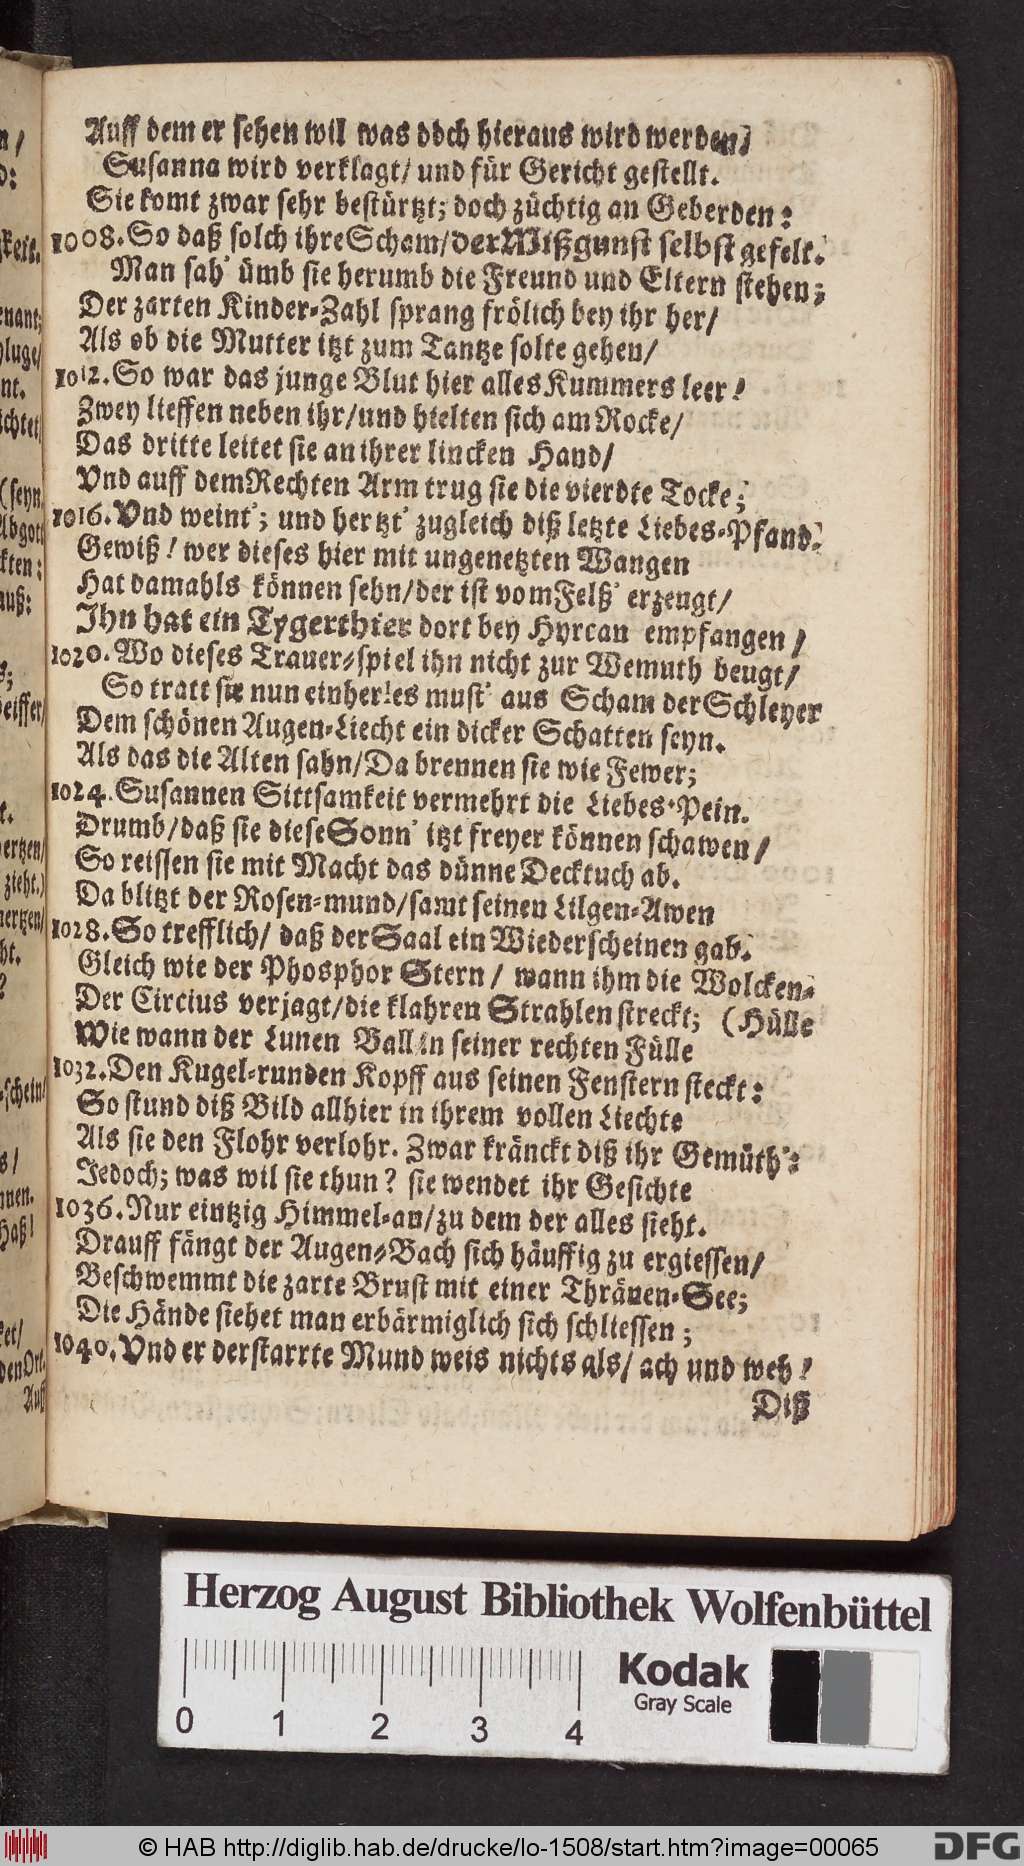 Auff dem er sehen wil was doch hieraus wird werden.
Susanna wird verklagt/ und für Gericht gestellt.
Sie komt zwar sehr bestürtzt; doch züchtig an Geberden:
1008. So daß solch ihre Scham/ der Mißgunst selbst gefelt.
Man sah' ümb sie herumb die Freund und Eltern stehen;
Der zarten Kinder-Zahl sprang frölich bey ihr her/
Als ob die Mutter itzt zum Tantze solte gehen/
1012. So war das junge Blut hier alles Kummers leer!
Zwey lieffen neben ihr/ und hielten sich am Rocke/
Das dritte leitet sie an ihrer lincken Hand/
Vnd auff dem Rechten Arm trug sie die vierdte Tocke;
1016. Vnd weint'; und hertzt' zugleich diß letzte Liebes-Pfand.
Gewiß! wer dieses hier mit ungenetzten Wangen
Hat damahls können sehn/ der ist vom Felß' erzeugt/
Ihn hat ein Tygerthier dort bey Hyrcan empfangen/
1020. Wo dieses Trauer-spiel ihn nicht zur Wemuth beugt/
So tratt sie nun einher! es must' aus Scham der Schleyer
Dem schönen Augen-Liecht ein dicker Schatten seyn.
Als das die Alten sahn/ Da brennen sie wie Fewer;
1024. Susannen Sittsamkeit vermehrt die Liebes-Pein.
Drumb/ daß sie diese Sonn' itzt freyer können schawen/
So reissen sie mit Macht das dünne Decktuch ab.
Da blitzt der Rosen-mund/ samt seinen Lilgen-Awen
1028. So trefflich/ daß der Saal ein Wiederscheinen gab.
Gleich wie der Phosphor Stern/ wann ihm die Wolcken-
Der Circius verjagt/ die klahren Strahlen streckt; (Hülle
Wie wann der Lunen Ball in seiner rechten Fülle
1032. Den Kugel-runden Kopff aus seinen Fenstern steckt:
So stund diß Bild allhier in ihrem vollen Liechte
Als sie den Flohr verlohr. Zwar kränckt diß ihr Gemüth':
Jedoch; was wil sie thun? sie wendet ihr Gesichte
1036. Nur eintzig Himmel-an/ zu dem der alles sieht.
Drauff fängt der Augen-Bach sich häuffig zu ergiessen/
Beschwemmt die zarte Brust mit einer Thränen-See;
Die Hände siehet man erbärmiglich sich schliessen;
1040. Vnd er derstarrte Mund weis nichts als/ ach und weh!
Diß
Herzog August Bibliothek Wolfenbüttel
Kodak
Gray Scale
0 1 2 3 4
© HAB http://diglib.hab.de/drucke/lo-1508/start.htm?image=00065
DFG